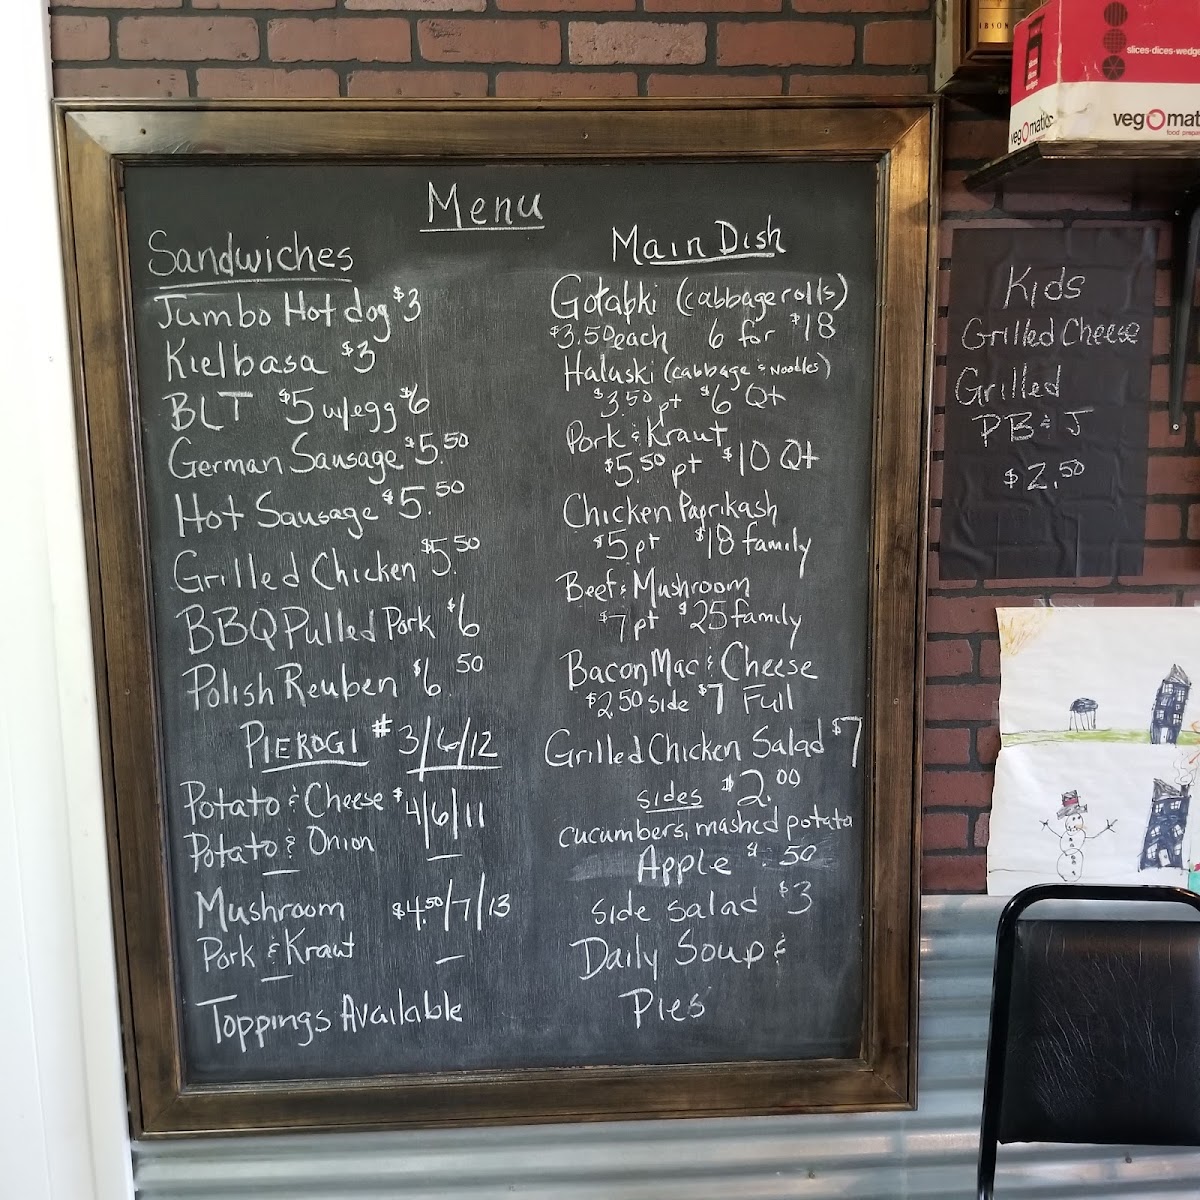 Menu
Sandwiches
Jumbo Hot dog $3
Kielbasa $3
BLT $5 w/egg $6
German Sausage $5.50
Hot Sausage $5.50
Grilled Chicken $5.50
BBQ Pulled Pork $6
Polish Reuben $6.50
PIEROGI # 3/6/12
Potato & Cheese $4/6/11
Potato & Onion
Mushroom $4.50/7/13
Pork & Kraut
Toppings Available
Main Dish
Gołąbki (cabbage rolls)
$3.50 each 6 for $18
Haluski (cabbage & Noodles)
$3.50 pt $6 Qt
Pork & Kraut
$5.50 pt $10 Qt
Chicken Paprikash
$5 pt $18 family
Beef & Mushroom
$7 pt $25 family
Bacon Mac & Cheese
$2.50 side $7 Full
Grilled Chicken Salad $7
sides $2.00
cucumbers, mashed potata
Apple $.50
side salad $3
Daily Soup &
Pies
Kids
Grilled Cheese
Grilled
PB & J
$2.50
slices·dices·wedge
vegOmatic
vegOmat
food prepa